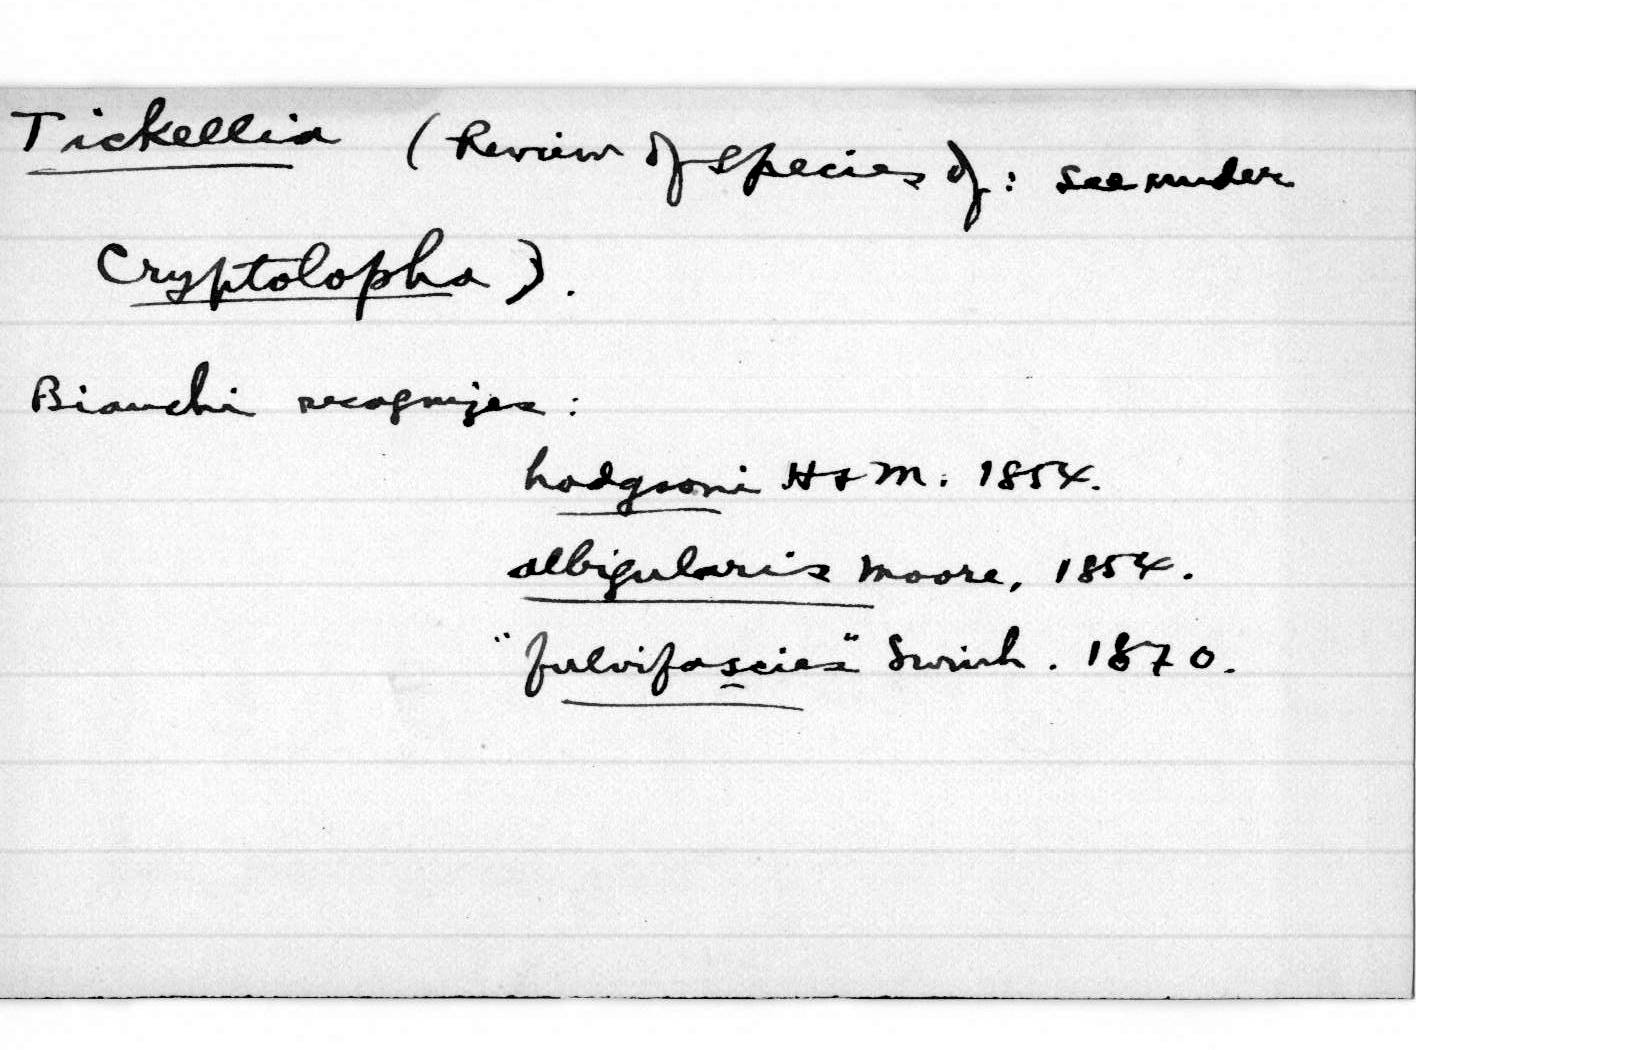 Tickellia (Review of species of: see under
Cryptolopha).
Bianchi recognizes:
hodgsoni H & M. 1854.
albigularis Moore, 1854.
"fulvifascies" Swinh. 1870.